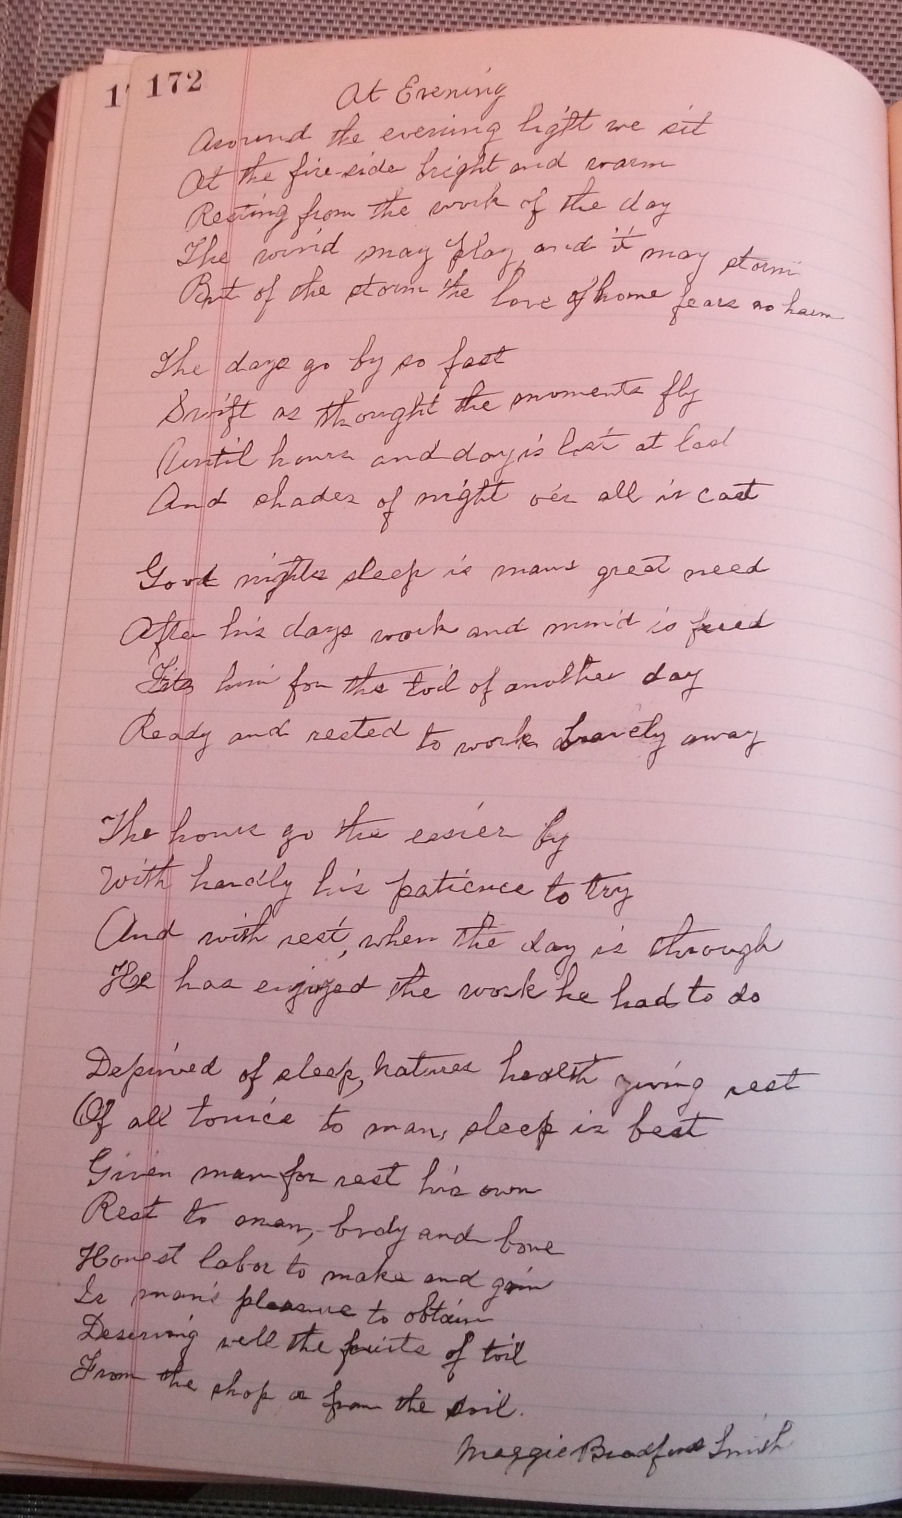 172
At Evening
Around the evening light we sit
At the fire-side bright and warm
Resting from the work of the day
The wind may play, and it may storm
But of the storm the love of home fears no harm
The days go by so fast
Swift as thought the moments fly
Until hours and day is lost at last
And shades of night o'er all is cast
Good nights sleep is mans great need
After his days work and mind is freed
Fits him for the toil of another day
Ready and rested to work bravely away
The hours go the easier by
With hardly his patience to try
And with rest, when the day is through
He has enjoyed the work he had to do
Deprived of sleep, natures health giving rest
Of all tonics to man, sleep is best
Given man for rest his own
Rest to man, body and bone
Honest labor to make and gain
Is man's pleasure to obtain
Deserving well the fruits of toil
From the shop or from the soil.
Maggie Bradford Smith